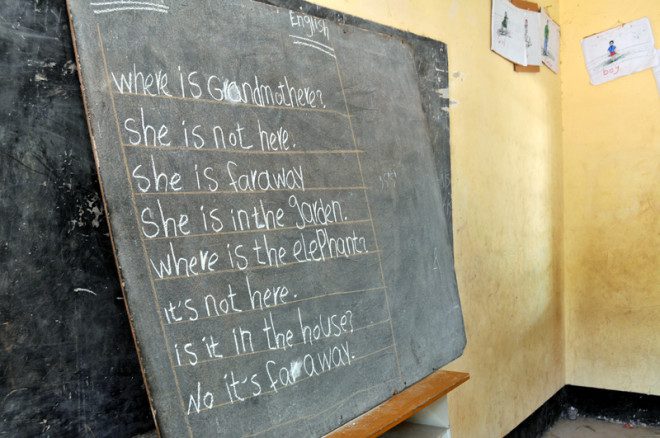 English
Where is Grandmothere?
She is not here.
She is faraway
She is in the garden.
Where is the elephant?
it's not here.
is it in the house?
No it's far away.
boy